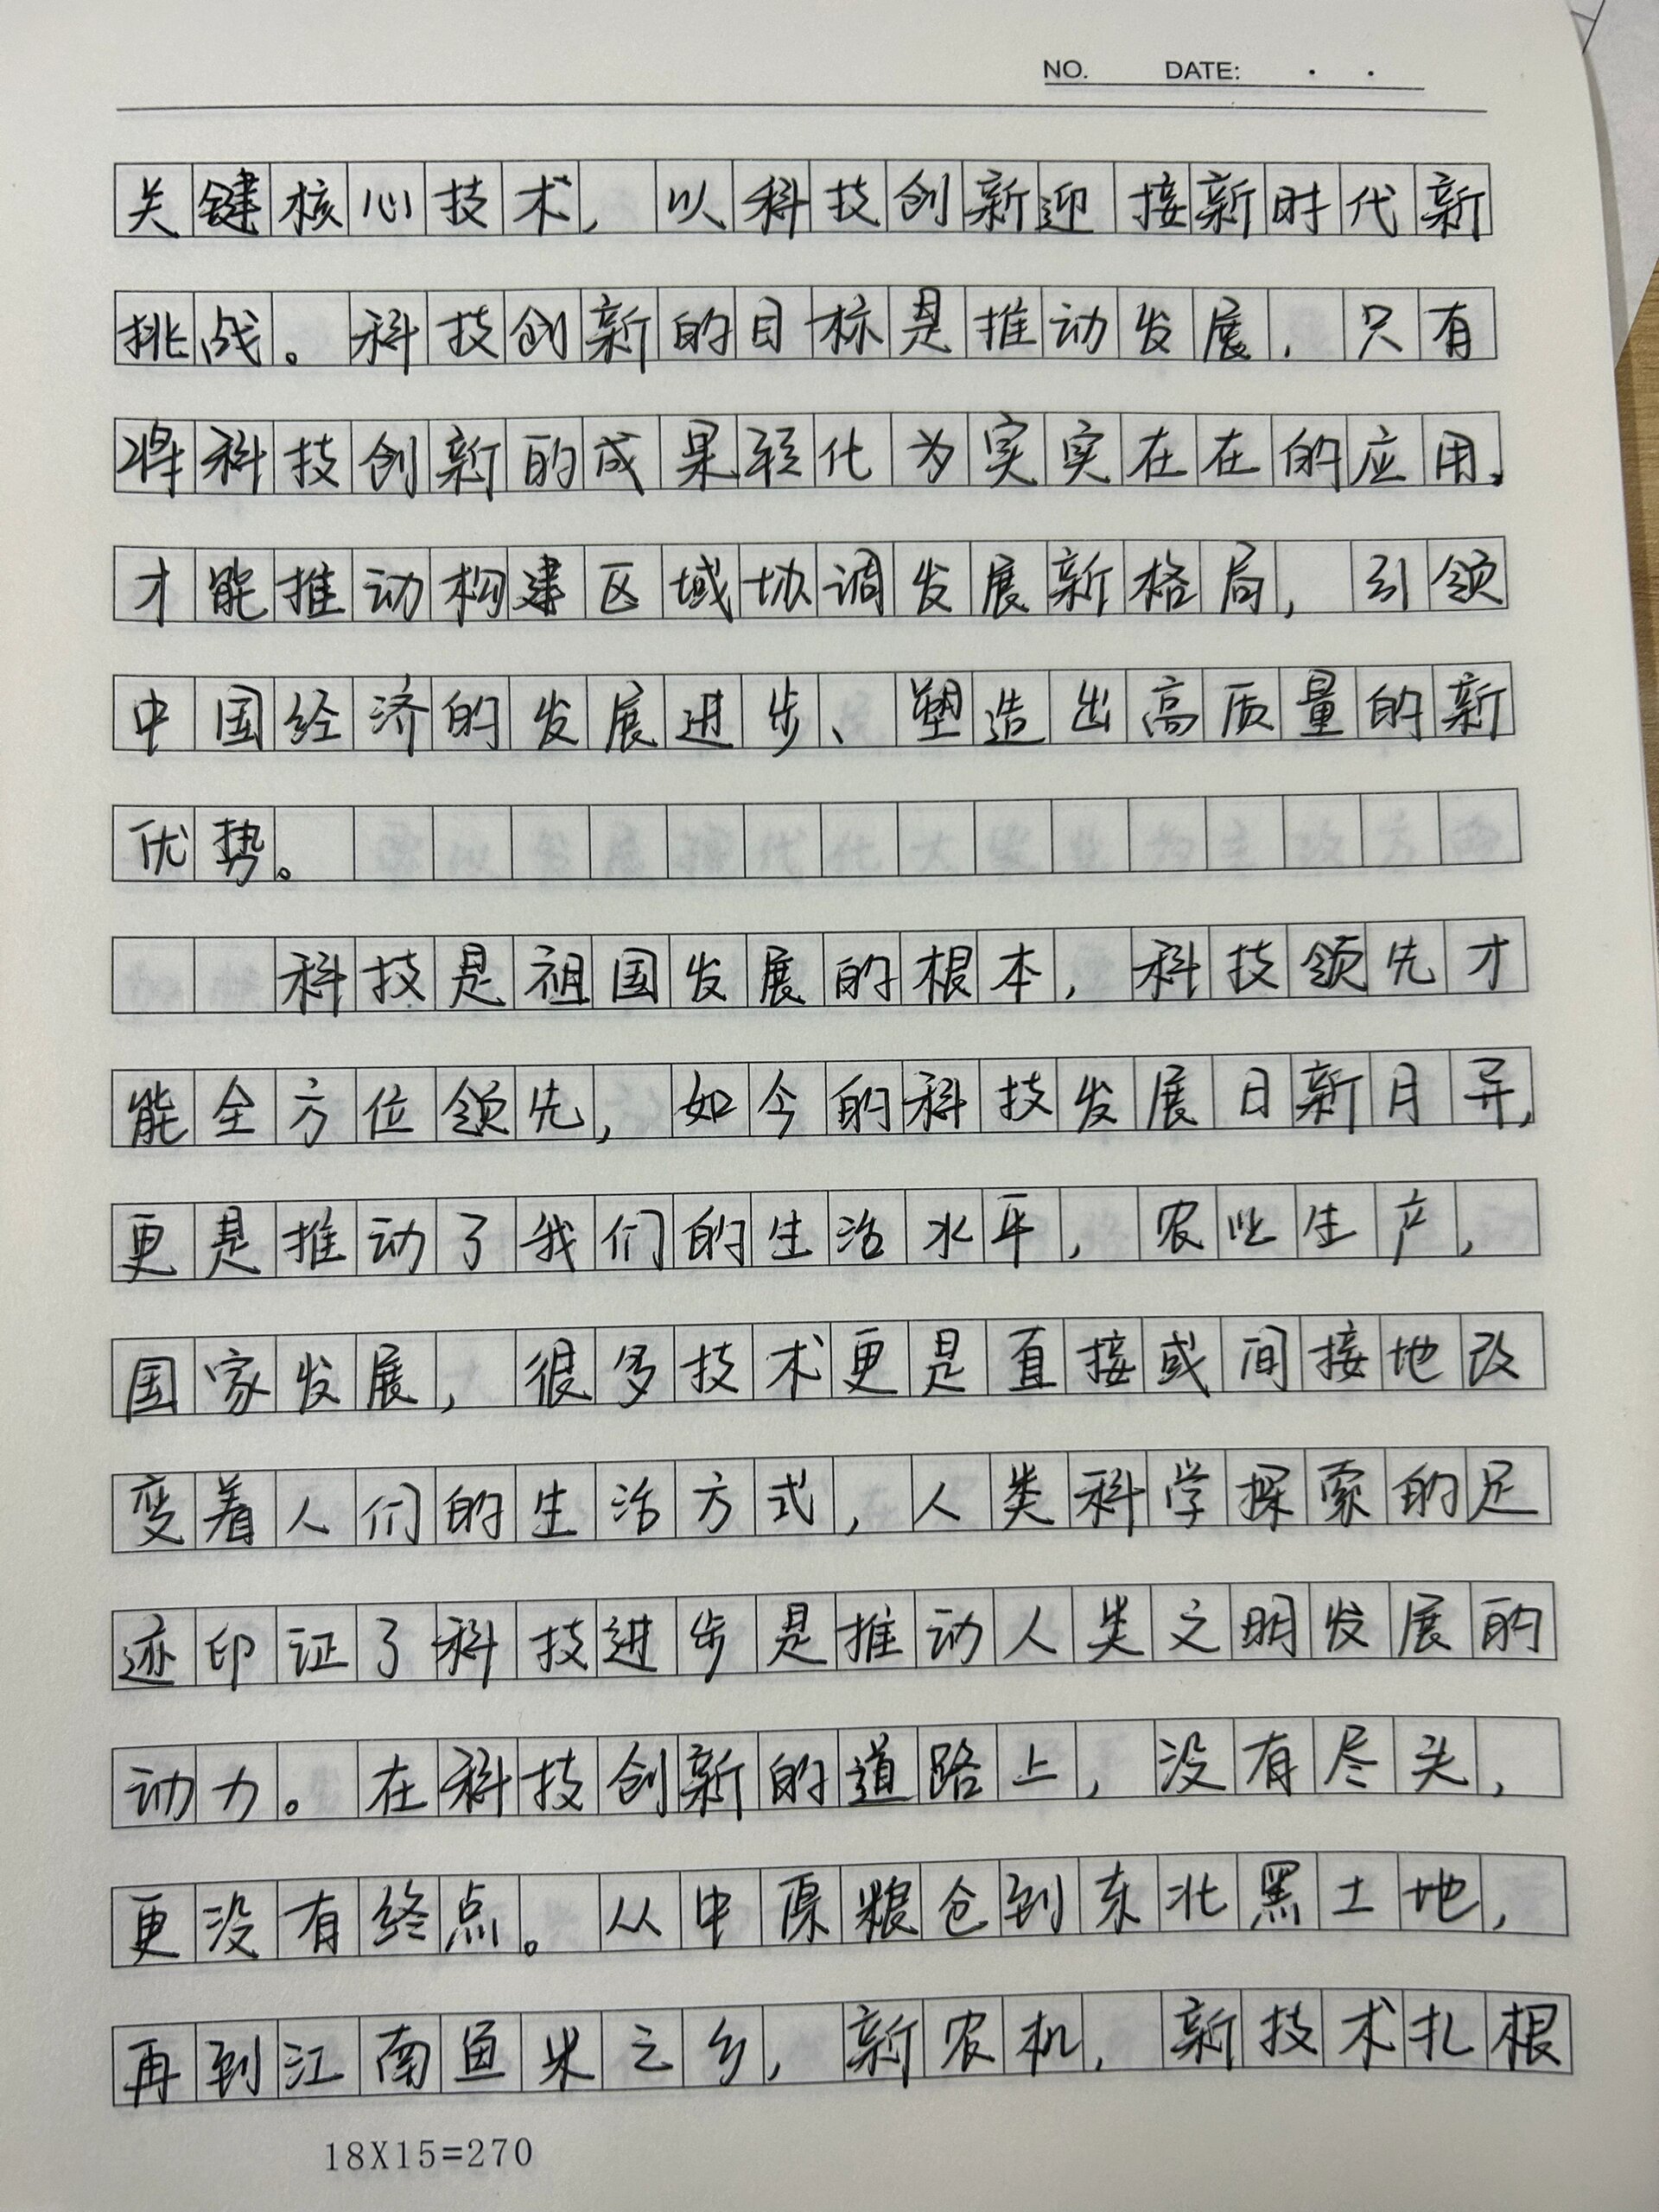 NO.    DATE:    .    .
关键核心技术，以科技创新迎接新时代新
挑战。科技创新的目标是推动发展，只有
将科技创新的成果转化为实实在在的应用，
才能推动构建区域协调发展新格局，引领
中国经济的发展进步、塑造出高质量的新
优势。
科技是祖国发展的根本，科技领先才
能全方位领先，如今的科技发展日新月异，
更是推动了我们的生活水平，农业生产，
国家发展，很多技术更是直接或间接地改
变着人们的生活方式，人类科学探索的足
迹印证了科技进步是推动人类文明发展的
动力。在科技创新的道路上，没有尽头，
更没有终点。从中原粮仓到东北黑土地，
再到江南鱼米之乡，新农机，新技术扎根
18X15=270